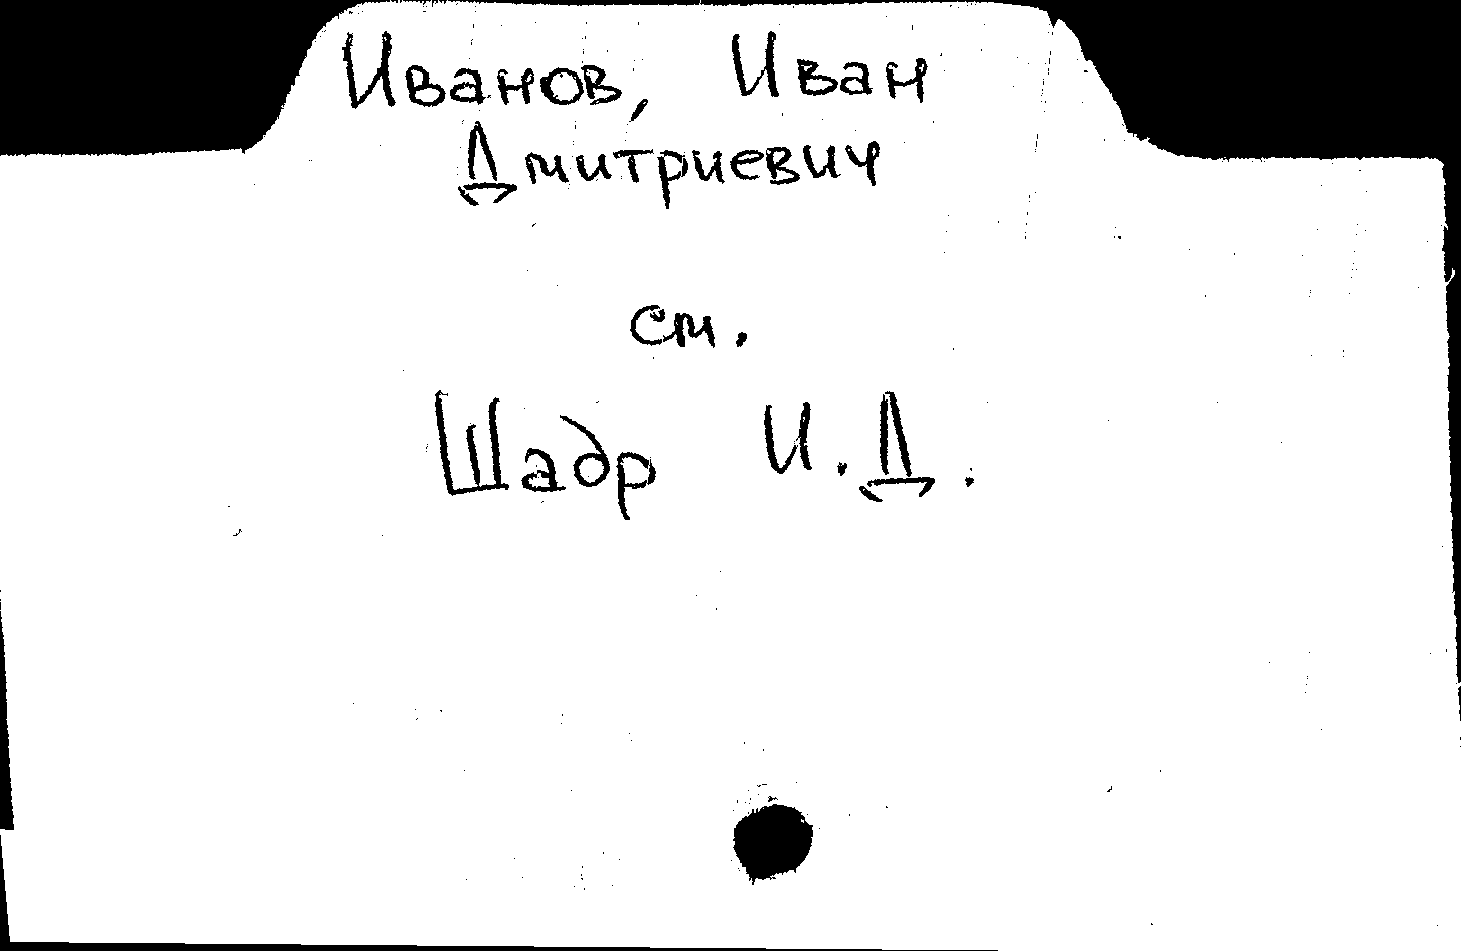 Иванов, Иван
Дмитриевич
см.
Шадр И.Д.